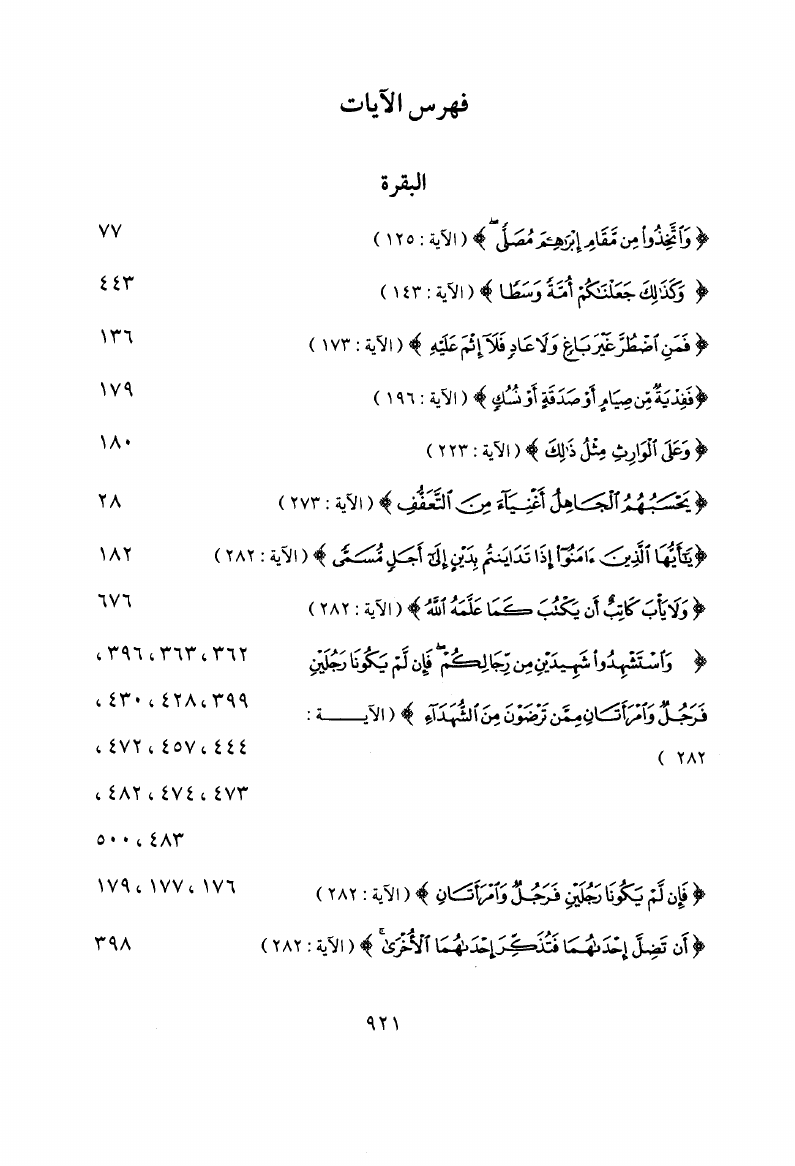 فهرس الآيات
البقرة
﴿ وَٱتَّخِذُوا۟ مِن مَّقَامِ إِبْرَٰهِۦمَ مُصَلًّى ۖ ﴾ ( الآية : ١٢٥ ) ٧٧
﴿ وَكَذَٰلِكَ جَعَلْنَٰكُمْ أُمَّةً وَسَطًا ﴾ ( الآية : ١٤٣ ) ٤٤٣
﴿ فَمَنِ ٱضْطُرَّ غَيْرَ بَاغٍ وَلَا عَادٍ فَلَآ إِثْمَ عَلَيْهِ ﴾ ( الآية : ١٧٣ ) ١٣٦
﴿فَفِدْيَةٌ مِّن صِيَامٍ أَوْ صَدَقَةٍ أَوْ نُسُكٍ ﴾ ( الآية : ١٩٦ ) ١٧٩
﴿ وَعَلَى ٱلْوَارِثِ مِثْلُ ذَٰلِكَ ﴾ ( الآية : ٢٢٣ ) ١٨٠
﴿ يَحْسَبُهُمُ ٱلْجَاهِلُ أَغْنِيَآءَ مِنَ ٱلتَّعَفُّفِ ﴾ ( الآية : ٢٧٣ ) ٢٨
﴿يَٰٓأَيُّهَا ٱلَّذِينَ ءَامَنُوٓا۟ إِذَا تَدَايَنتُم بِدَيْنٍ إِلَىٰٓ أَجَلٍ مُّسَمًّى ﴾ ( الآية : ٢٨٢ ) ١٨٢
﴿ وَلَا يَأْبَ كَاتِبٌ أَن يَكْتُبَ كَمَا عَلَّمَهُ ٱللَّهُ ﴾ ( الآية : ٢٨٢ ) ٦٧٦
﴿ وَٱسْتَشْهِدُوا۟ شَهِيدَيْنِ مِن رِّجَالِكُمْ ۖ فَإِن لَّمْ يَكُونَا رَجُلَيْنِ ٣٦٢ ، ٣٦٣ ، ٣٩٦ ،
فَرَجُلٌ وَٱمْرَأَتَانِ مِمَّن تَرْضَوْنَ مِنَ ٱلشُّهَدَآءِ ﴾ ( الآيـــــة : ٣٩٩ ، ٤٢٨ ، ٤٣٠ ،
٢٨٢ ) ٤٤٤ ، ٤٥٧ ، ٤٧٢ ،
٤٧٣ ، ٤٧٤ ، ٤٨٢ ،
٤٨٣ ، ٥٠٠
﴿ فَإِن لَّمْ يَكُونَا رَجُلَيْنِ فَرَجُلٌ وَٱمْرَأَتَانِ ﴾ ( الآية : ٢٨٢ ) ١٧٦ ، ١٧٧ ، ١٧٩
﴿ أَن تَضِلَّ إِحْدَىٰهُمَا فَتُذَكِّرَ إِحْدَىٰهُمَا ٱلْأُخْرَىٰ ۚ ﴾ ( الآية : ٢٨٢ ) ٣٩٨
٩٢١